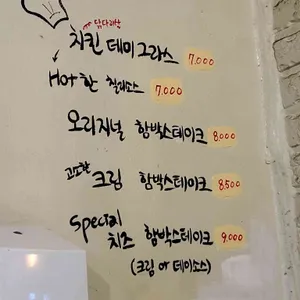 닭다리살
치킨 데미그라스 7,000
Hot한 칠리소스 7,000
오리지널 함박스테이크 8,000
고소한 크림 함박스테이크 8,500
Special 치즈 함박스테이크 9,000
(크림 or 데미소스)